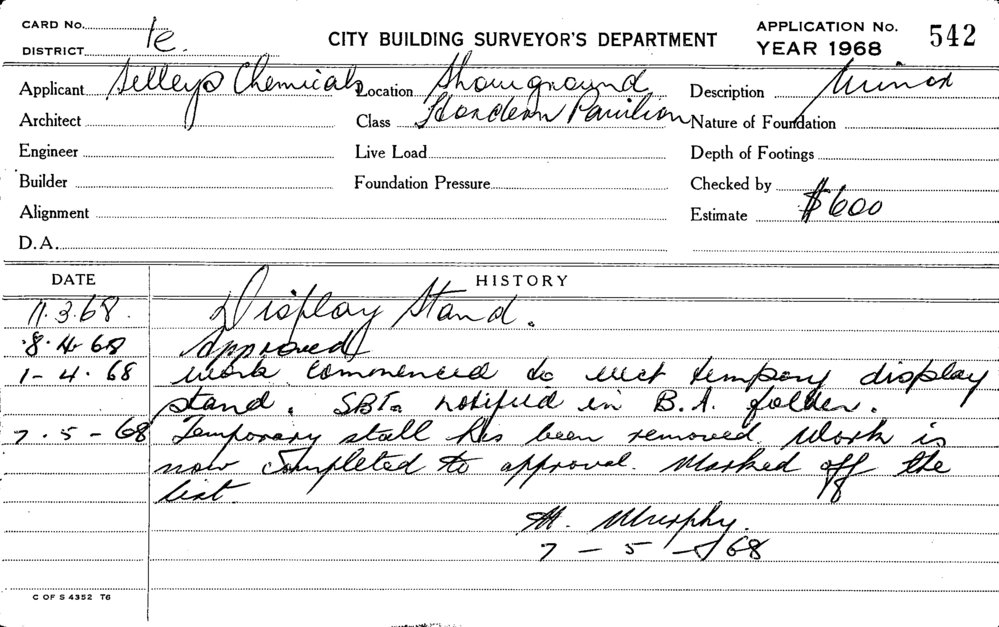 CARD No.
1e.
DISTRICT
CITY BUILDING SURVEYOR'S DEPARTMENT
APPLICATION No.
YEAR 1968
542
Applicant Selleys Chemicals Location Showground Description Minor
Architect Class Hordern Pavilion Nature of Foundation
Engineer Live Load Depth of Footings
Builder Foundation Pressure Checked by
Alignment Estimate $600
D.A.
DATE HISTORY
11.3.68. Display Stand.
8.4.68 Approved
1-4.68 work commenced to erect tempory display
stand. notified in B.A. folder.
7.5-68 Temporary stall has been removed. Work is
now completed to approval. Marked off the
list.
M. Murphy.
7-5-68
C OF S 4352 T6